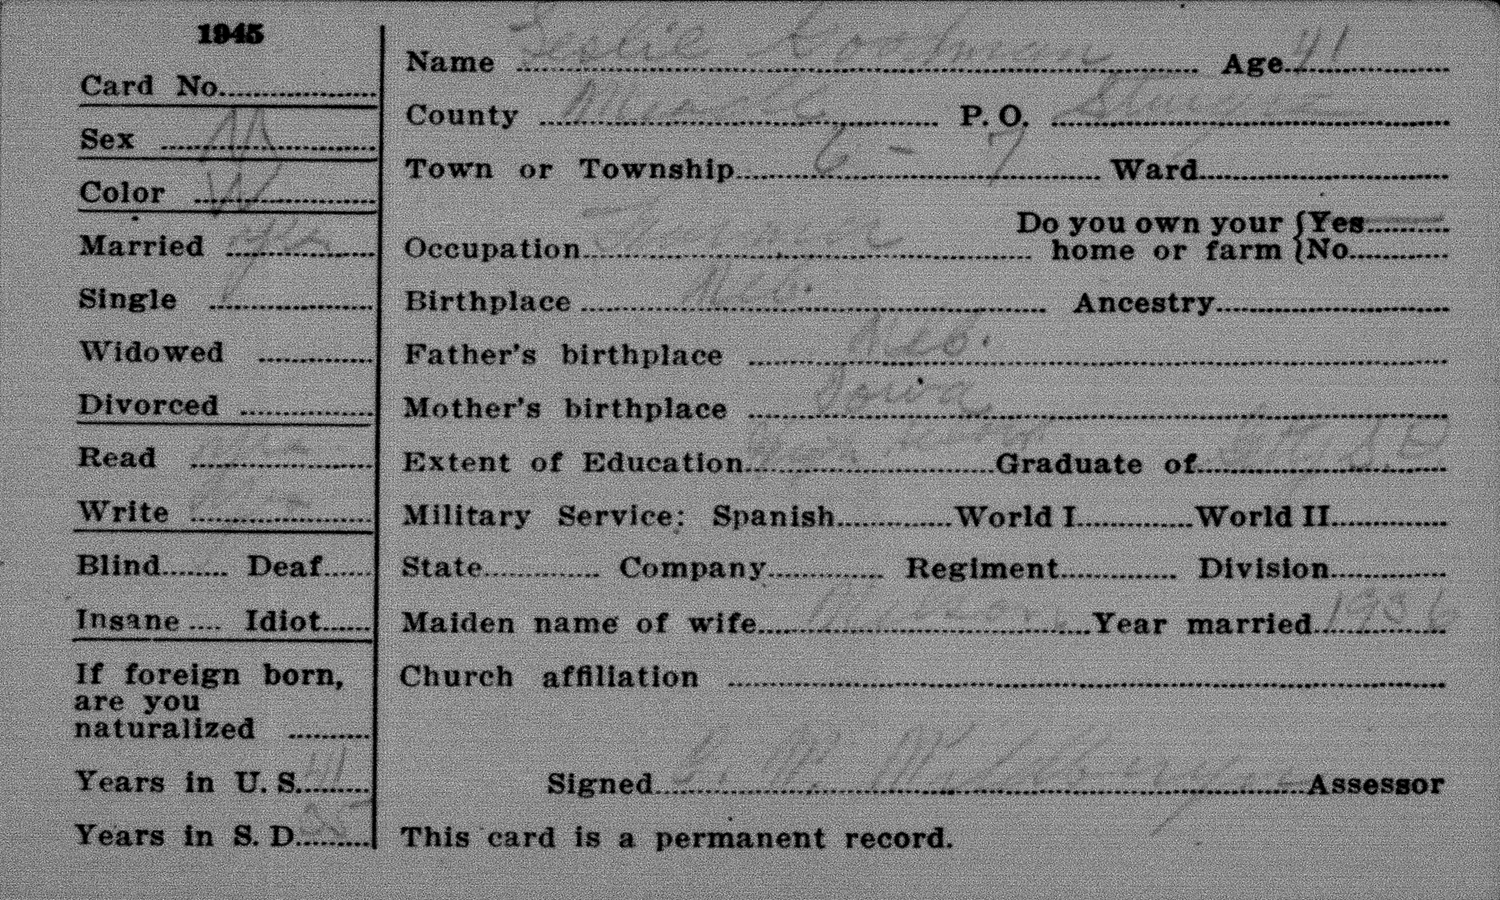 1945
Card No.
Sex M
Color W
Married yes
Single
Widowed
Divorced
Read yes
Write yes
Blind Deaf
Insane Idiot
If foreign born,
are you
naturalized
Years in U. S. 41
Years in S. D. 35
Name Leslie Age 41
County Meade P. O. Sturgis
Town or Township 6 - 7 Ward
Do you own your Yes
Occupation Farmer home or farm No
Birthplace Neb. Ancestry
Father's birthplace Neb.
Mother's birthplace Iowa
Extent of Education Graduate of
Military Service: Spanish World I World II
State Company Regiment Division
Maiden name of wife Year married 1936
Church affiliation
Signed Assessor
This card is a permanent record.